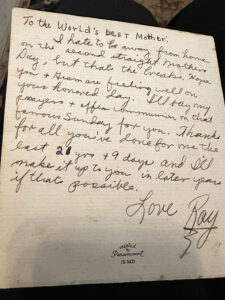 To the World's BEST Mother:
I hate to be away from home
on the second straight Mothers
Day - but thats the breaks. Hope
you & Gram are feeling well on
your honored day. I'll say my
prayers & offer Communion on that
famous Sunday for you. Thanks
for all you've done for me the
last 20 yrs + 9 days and I'll
make it up to you in later years
if that possible.
Love Ray
created by
Paramount
15 MD